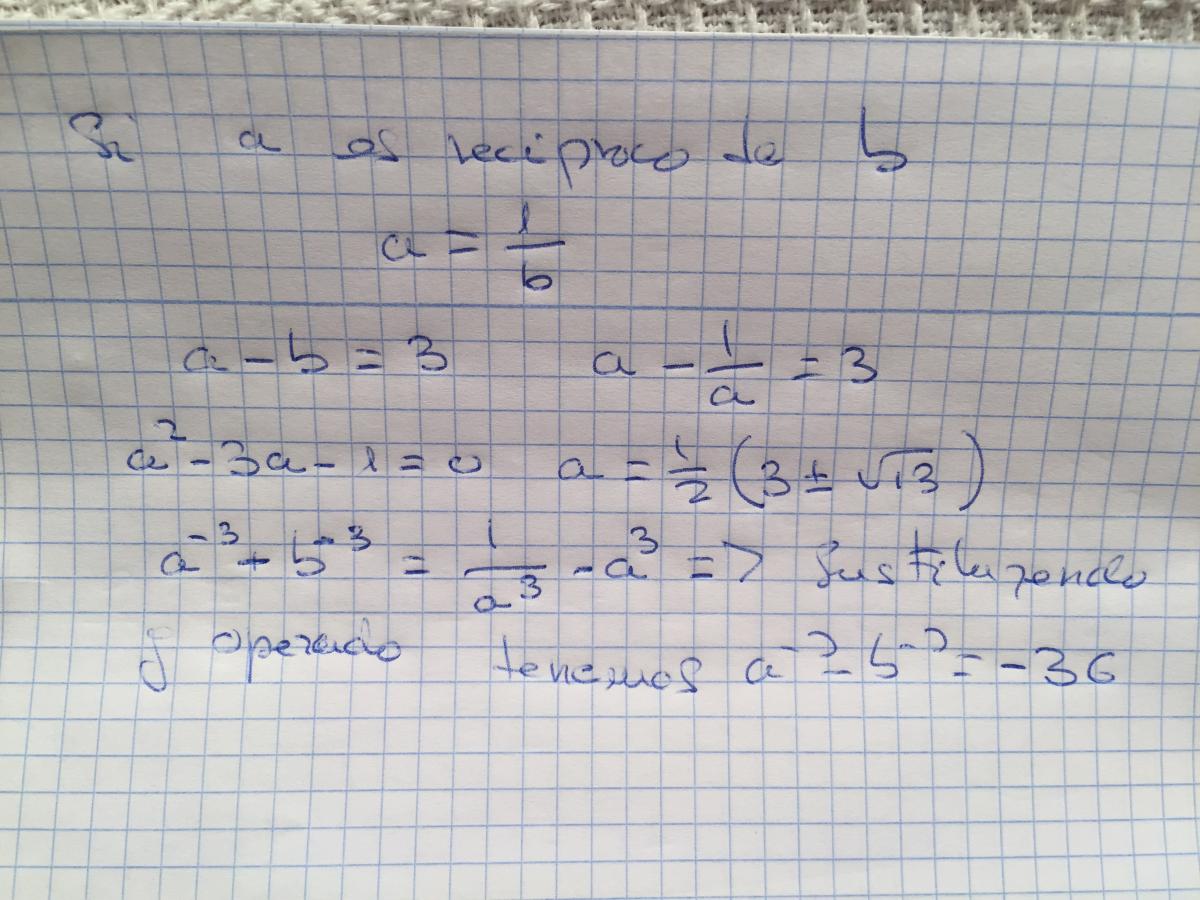 Si a es reciproco de b
a = 1/b
a - b = 3 a - 1/a = 3
a² - 3a - 1 = 0 a = 1/2 (3 ± √13)
a⁻³ + b⁻³ = 1/a³ - a³ => Sustituyendo
y operado tenemos a⁻³ - b⁻³ = -36